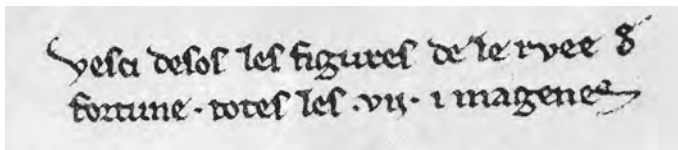 vesci desos les figures de le rvee d
fortune · totes les · vij · imagenes